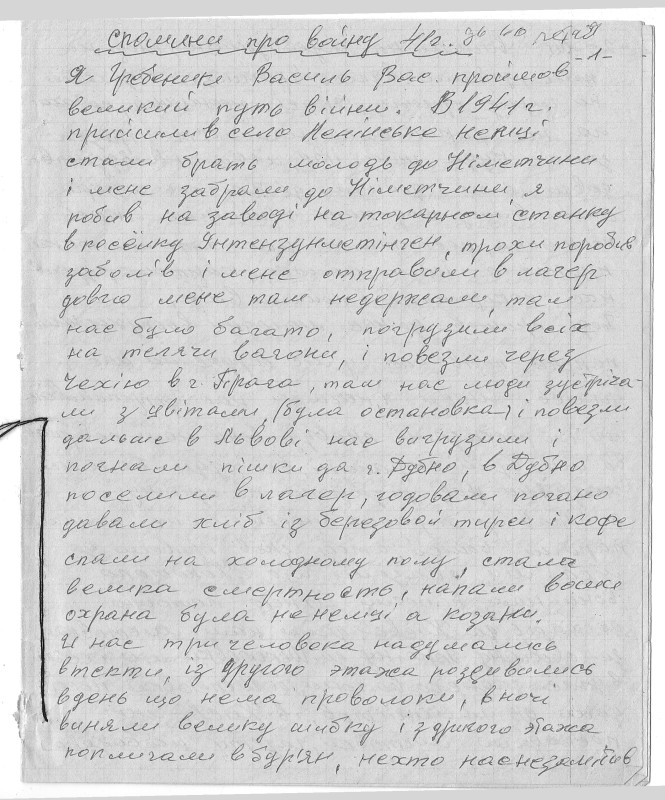 спомини про войну 41г.
-1-
Я Гребенике Василь Вас. пройшов
великий путь війни. В 1941 г.
прийшли в село Ленінське немці
стали брать молодь до Німетчини
і мене забрали до Німетчини, я
робив на заводі на токарном станку
в посёлку, трохи поробив
заболів і мене отправили в лагер
довго мене там недержали, там
нас було багато, погрузили всіх
на телячи вагони, і повезли через
Чехію в г. Прага, там нас люди зустріча-
ли з цвітами, (була остановка) і повезли
дальше в Львові нас вигрузили і
погнали пішки до г. Дубно, в Дубно
поселили в лагер, годовали погано
давали хліб із березовой тирси і кофе
спали на холодному полу, стала
велика смертность, напали воши
охрана була не немці а козаки.
И нас три человока надумались
втекти, із другого этажа роздивились
вдень що нема проволоки, вночі
виняли велику шибку і з другого этажа
поплигали в бур'ян, нехто нас незамітив